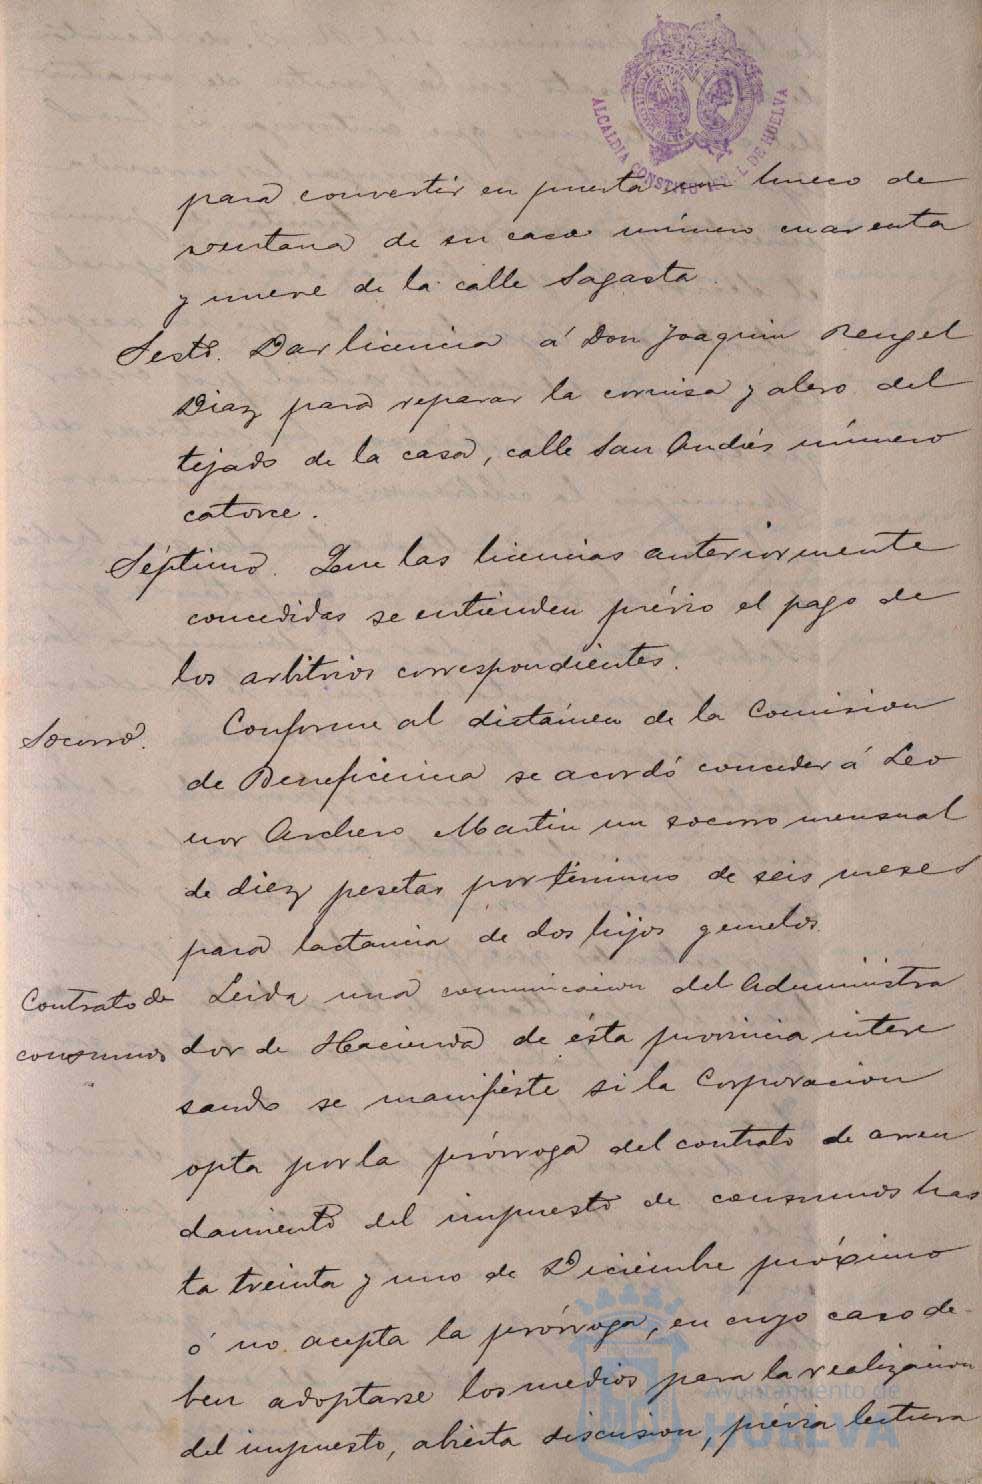 ALCALDIA CONSTITUCIONAL DE HUELVA
para convertir en puerta un hueco de
ventana de su casa número cuarenta
y nueve de la calle Sagasta.
Sesto. Dar licencia á Don Joaquin Rengel
Diaz para reparar la cornisa y alero del
tejado de la casa, calle San Andrés número
catorce.
Séptimo. Que las licencias anteriormente
concedidas se entienden prévio el pago de
los arbitrios correspondientes.
Socorro. Conforme al dictámen de la Comision
de Beneficencia se acordó conceder á Leo
nor Archero Martin un socorro mensual
de diez pesetas por término de seis meses
para lactancia de dos hijos gemelos.
Contrato de Leida una comunicacion del Administra
consumos dor de Hacienda de ésta provincia intere
sando se manifieste si la Corporacion
opta por la prórroga del contrato de arren
damiento del impuesto de consumos has
ta treinta y uno de Diciembre próximo
ó no acepta la prórroga, en cuyo caso de-
ben adoptarse los medios para la realizacion
del impuesto, abierta discusion, prévia lectura
Ayuntamiento de
HUELVA